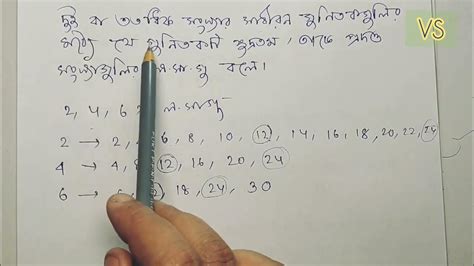 VS
দুই বা ততোধিক সংখ্যার সাধারন গুনিতকগুলির
মধ্যে যে গুনিতকটি ক্ষুদ্রতম, তাকে প্রদত্ত
সংখ্যাগুলির ল.সা.গু বলে।
2, 4, 6 ল.সা.গু
2 → 2, 6, 8, 10, 12, 14, 16, 18, 20, 22, 24
4 → 4, 12, 16, 20, 24
6 → 18, 24, 30